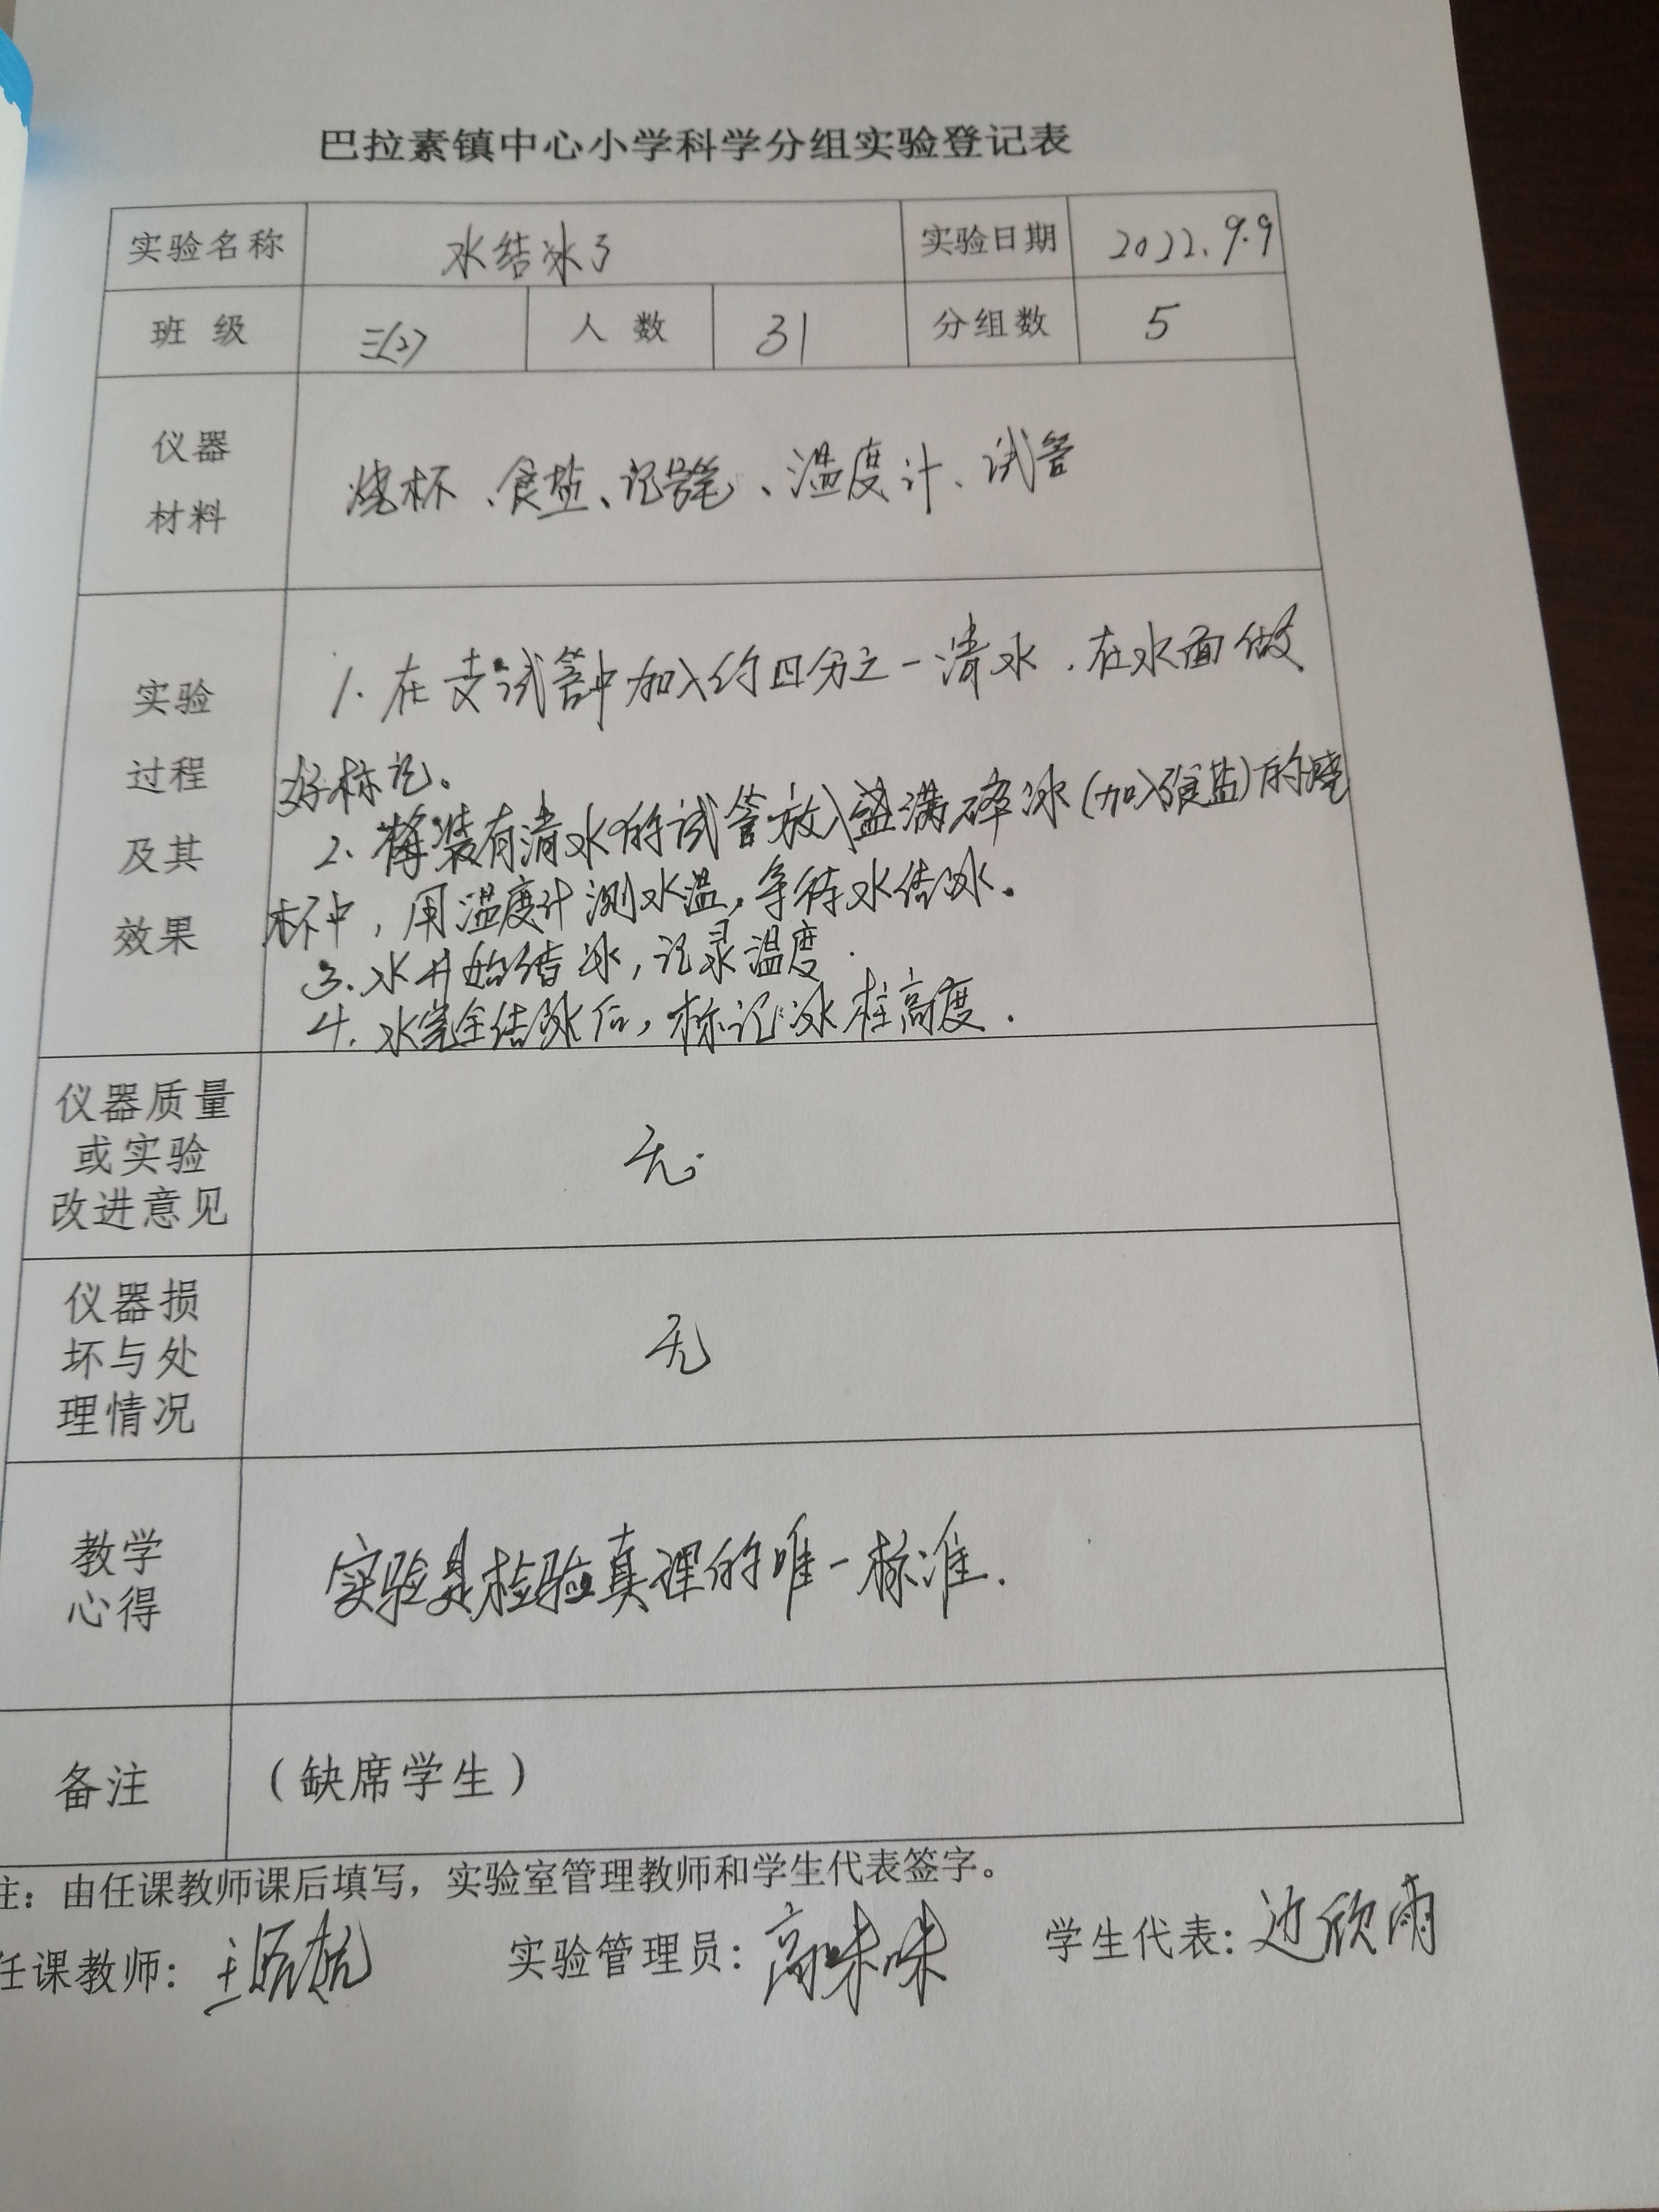 巴拉素镇中心小学科学分组实验登记表
实验名称 水结冰了 实验日期 2022.9.9
班 级 三(2) 人 数 31 分组数 5
仪器
材料
烧杯、食盐、记号笔、温度计、试管
实验
过程
及其
效果
1. 在支试管中加入约四分之一清水.在水面做
好标记。
2、将装有清水的试管放入盛满碎冰(加入食盐)的烧
杯中，用温度计测水温，等待水结冰。
3. 水开始结冰，记录温度.
4. 水完全结冰后，标记冰柱高度.
仪器质量
或实验
改进意见
无.
仪器损
坏与处
理情况
无
教学
心得
实验是检验真理的唯一标准.
备注 (缺席学生)
注：由任课教师课后填写，实验室管理教师和学生代表签字。
任课教师: 实验管理员: 高味味 学生代表: 边欣雨